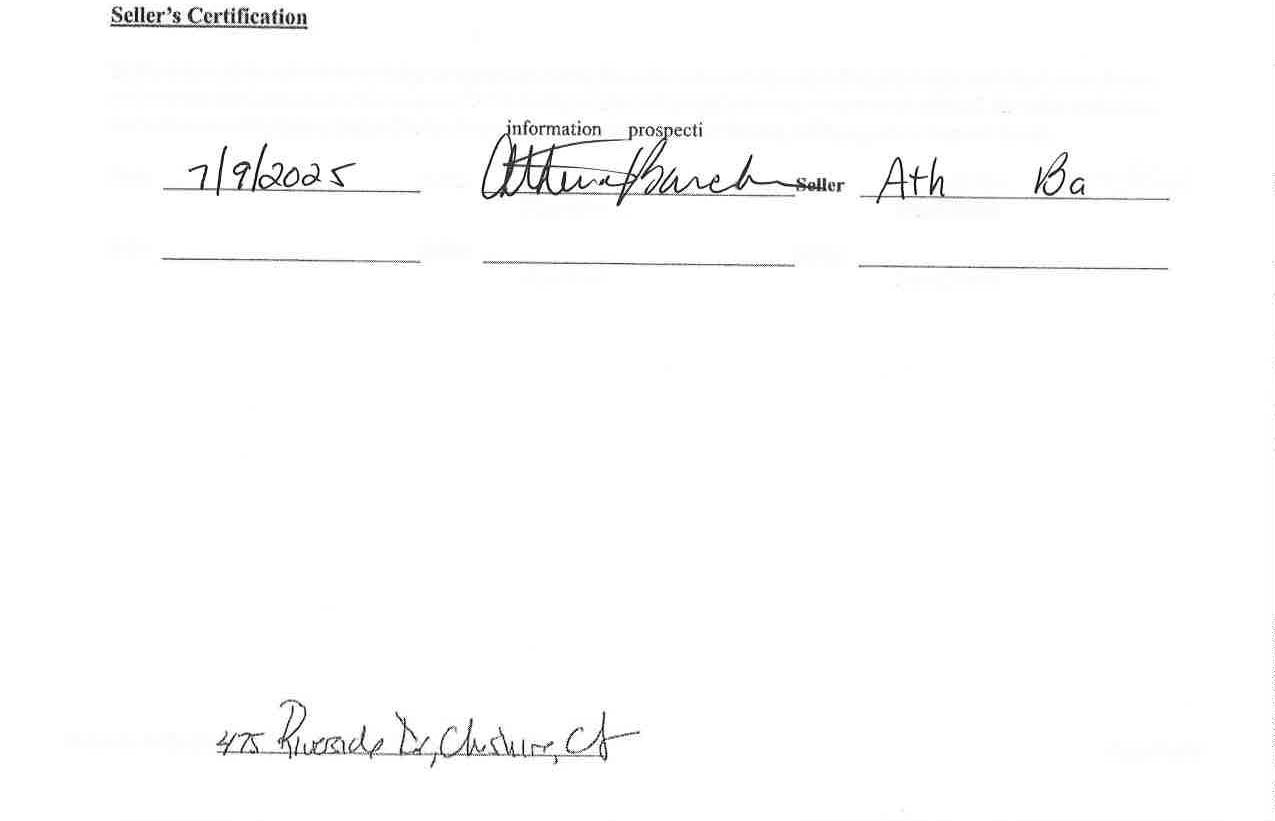 Seller's Certification
information prospecti
7/9/2025 Seller Ath Ba
475 Riverside Dr, Cheshire, Ct